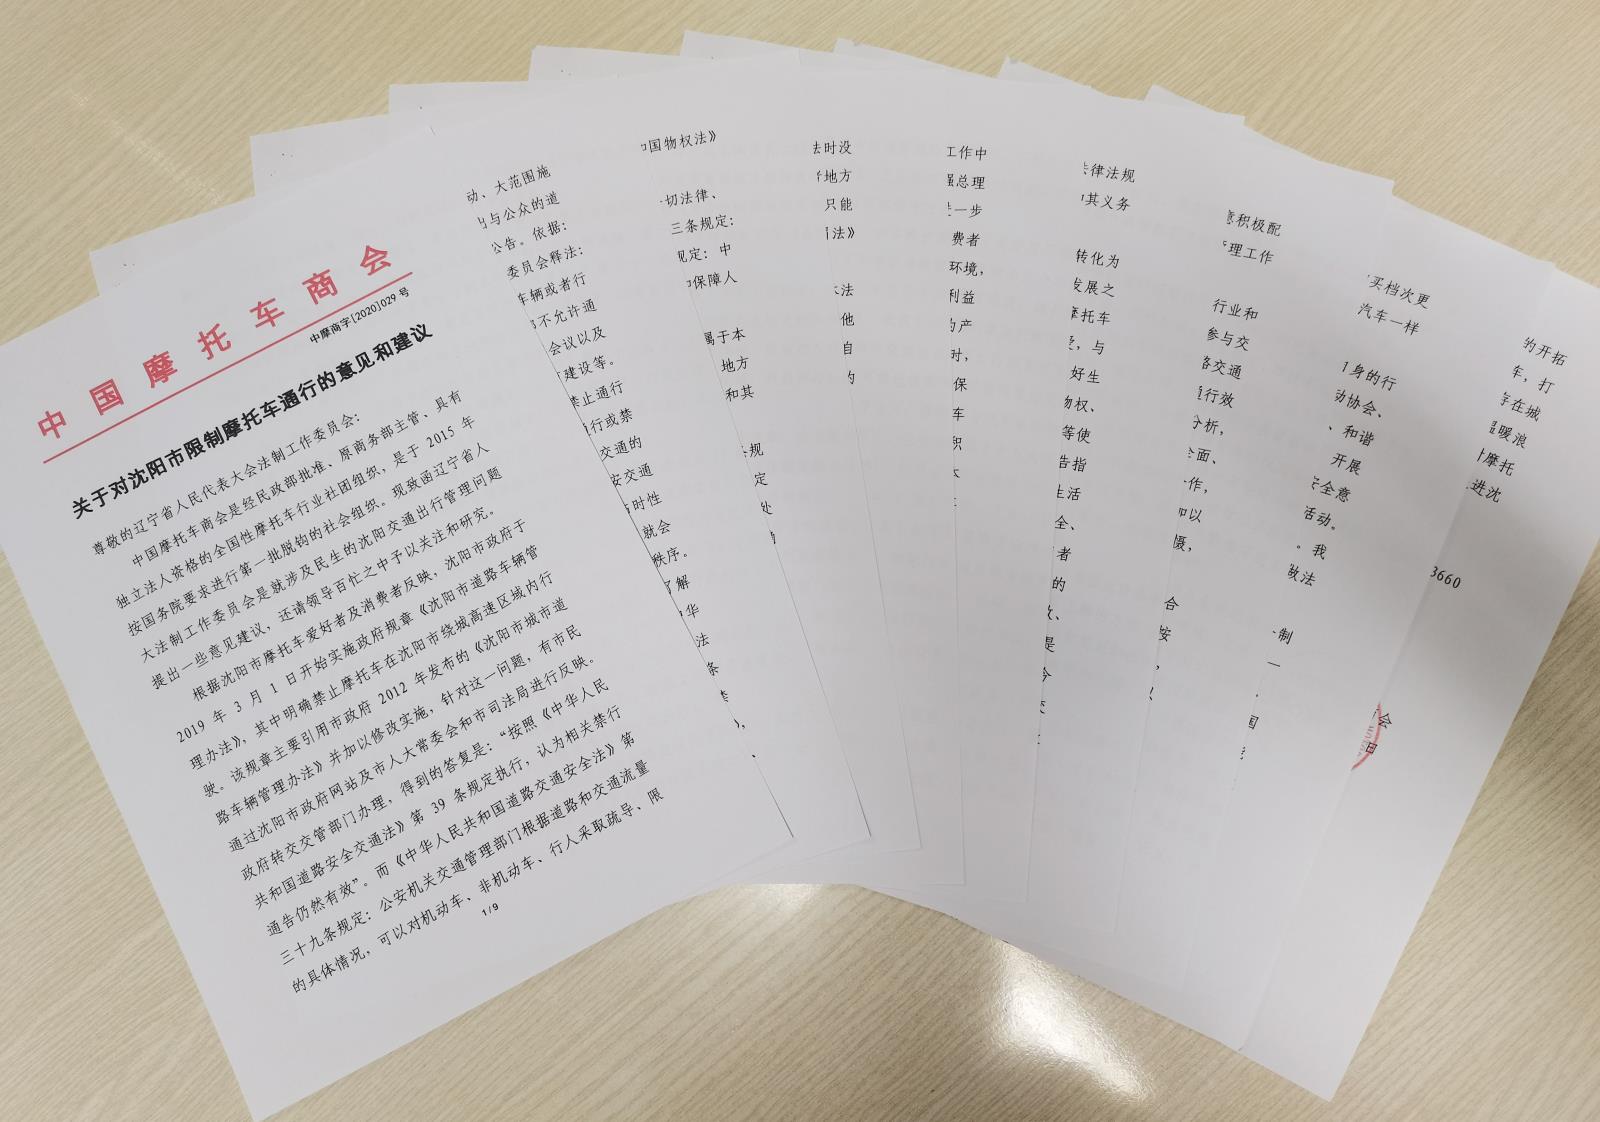 中国摩托车商会
中摩商字[2020]029号
关于对沈阳市限制摩托车通行的意见和建议
尊敬的辽宁省人民代表大会法制工作委员会：
中国摩托车商会是经民政部批准、原商务部主管、具有
独立法人资格的全国性摩托车行业社团组织，是于 2015 年
按国务院要求进行第一批脱钩的社会组织。现致函辽宁省人
大法制工作委员会是就涉及民生的沈阳交通出行管理问题
提出一些意见建议，还请领导百忙之中予以关注和研究。
根据沈阳市摩托车爱好者及消费者反映，沈阳市政府于
2019 年 3 月 1 日开始实施政府规章《沈阳市道路车辆管
理办法》，其中明确禁止摩托车在沈阳市绕城高速区域内行
驶。该规章主要引用市政府 2012 年发布的《沈阳市城市道
路车辆管理办法》并加以修改实施，针对这一问题，有市民
通过沈阳市政府网站及市人大常委会和市司法局进行反映。
政府转交交管部门办理，得到的答复是：“按照《中华人民
共和国道路安全交通法》第 39 条规定执行，认为相关禁行
通告仍然有效”。而《中华人民共和国道路交通安全法》第
三十九条规定：公安机关交通管理部门根据道路和交通流量
的具体情况，可以对机动车、非机动车、行人采取疏导、限
1/9
动、大范围施
出与公众的道
公告。依据：
委员会释法：
车辆或者行
不允许通
会议以及
建设等。
禁止通行
行或禁
交通的
安交通
时性
就会
秩序。
了解
华
法
条
国物权法》
切法律、
三条规定：
规定：中
和保障人
属于本
地方
和其
规
定
处
法时没
地方
只能
法》
法
他
自
的
工作中
强总理
进一步
费者
环境，
利益
的产
时，
保
车
积
法律法规
其义务
转化为
发展之
摩托车
与
好生
物权、
等使
告指
生活
全、
者
的
是
今
意积极配
管理工作
行业和
参与交
路交通
通行效
分析，
全面、
作，
加以
慑，
合
按
以
买档次更
汽车一样
身的行
动协会、
、和谐
开展
安全意
活动。
。我
政法
制
一
国
能
的开拓
车，打
存在城
温暖浪
摩托
进沈
3660
会
日